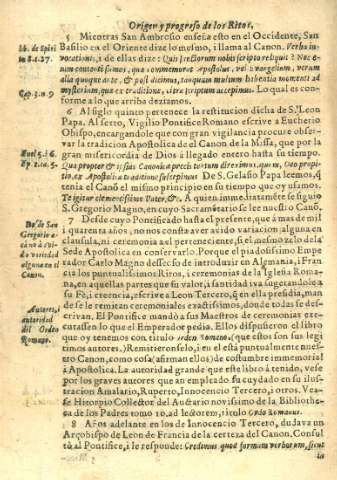 Origen y progreso de los Ritos,
5 Mientras San Ambrosio enseña esto en el Occidente, San
lib. de Spiri Basilio en el Oriente dize lo mesmo, i llama al Canon. Verba in-
to S.c.27. vocationis, i de ellas dize: Quis sanctorum nobis scripto reliquit? Nec e-
nim contenti sumus, quæ commemorat Apostolus, vel Euangelium, verum
alia quoque ante, & post dicimus, tanquam multum habentia momenti ad
Cap. 3. n. 9 mysterium, quæ ex traditione, citra scriptum accepimus. Lo qual es con-
forme a lo que arriba deziamos.
6 Al siglo quinto pertenece la restitucion dicha de S. Leon
Papa. Al sexto, Vigilio Pontifice Romano escrive a Eucherio
Obispo, encargandole que con gran vigilancia procure obser-
var la tradicion Apostolica de el Canon de la Missa, que por la
gran misericordia de Dios a llegado entero hasta su tiempo.
Quapropter & ipsius Canonicæ precis textum direximus, quem, Deo propi-
tio, ex Apostolica traditione suscepimus De S. Gelasio Papa leemos, q
tenia el Canõ el mismo principio en su tiempo que oy usamos.
Te igitur clementissime Pater, &c. A quien immediatamẽte se siguio
S. Gregorio Magno, en cuyo Sacramẽtario se lee nuestro Canõ.
7 Desde cuyo Pontificado hasta el presente, que à mas de mil
De San
Gregorio a-
cà
alguna en el
Canon.
i quarenta años, no nos consta aver avido variacion alguna en
clausula, ni ceremonia a el perteneciente, si el mesmo zelo de la
Sede Apostolica en conservarlo. Porque el piadosissimo Empe-
rador Carlo Magno desseoso de introducir en Alemania, i Fran
cia los puntualissimos Ritos, i ceremonias de la Iglesia Roma-
na, en aquellas partes que su valor, i santidad iva sugetandole a
su Fè, i creencia, escrive a Leon Tercero, q̃ en ella presidia, man
de se le remitan ceremoniales exactissimos, donde todas se des-
Autores, i
autoridad
del Orden
Romano.
crivan. El Pontifice mandò a sus Maestros de ceremonias exe-
cutassen lo que el Emperador pedia. Ellos dispusieron el libro
que oy tenemos con titulo orden Romano, (que estos son sus legi
timos autores.) Remitieronselo, i en el està puntualmente nues-
tro Canon, como cosa (afirman ellos) de costumbre immemorial
à Apostolica. La autoridad grande que este libro à tenido, vese
por los graves autores que an empleado su cuydado en su ilus-
tracion Amalario, Ruperto, Innocencio Tercero, i otros, Vea-
se Hitorpio Collector del Auctario novissimo de la Bibliothe-
ca de los Padres tomo 10. ad lectorem, titulo Ordo Romanus.
8 Años adelante en los de Innocencio Tercero, dudava un
Arçobispo de Leon de Francia de la certeza del Canon. Consul
tò al Pontifice, i le responde: Credimus quod formam verborum, sicut
in